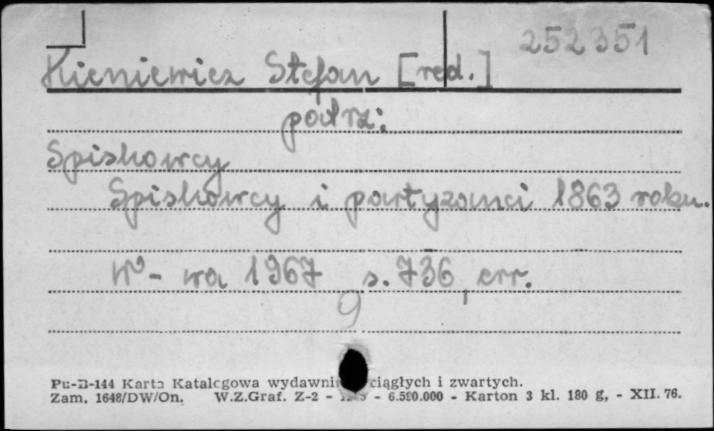 252351
Kieniewicz Stefan [red.]
patrz:
Spiskowcy
Spiskowcy i partyzanci 1863 roku.
W-wa 1967 s. 736, err.
9
Pu-B-144 Karta Katalogowa wydawni ciągłych i zwartych.
Zam. 1648/DW/On. W.Z.Graf. Z-2 - - 6.590.000 - Karton 3 kl. 180 g, - XII. 76.